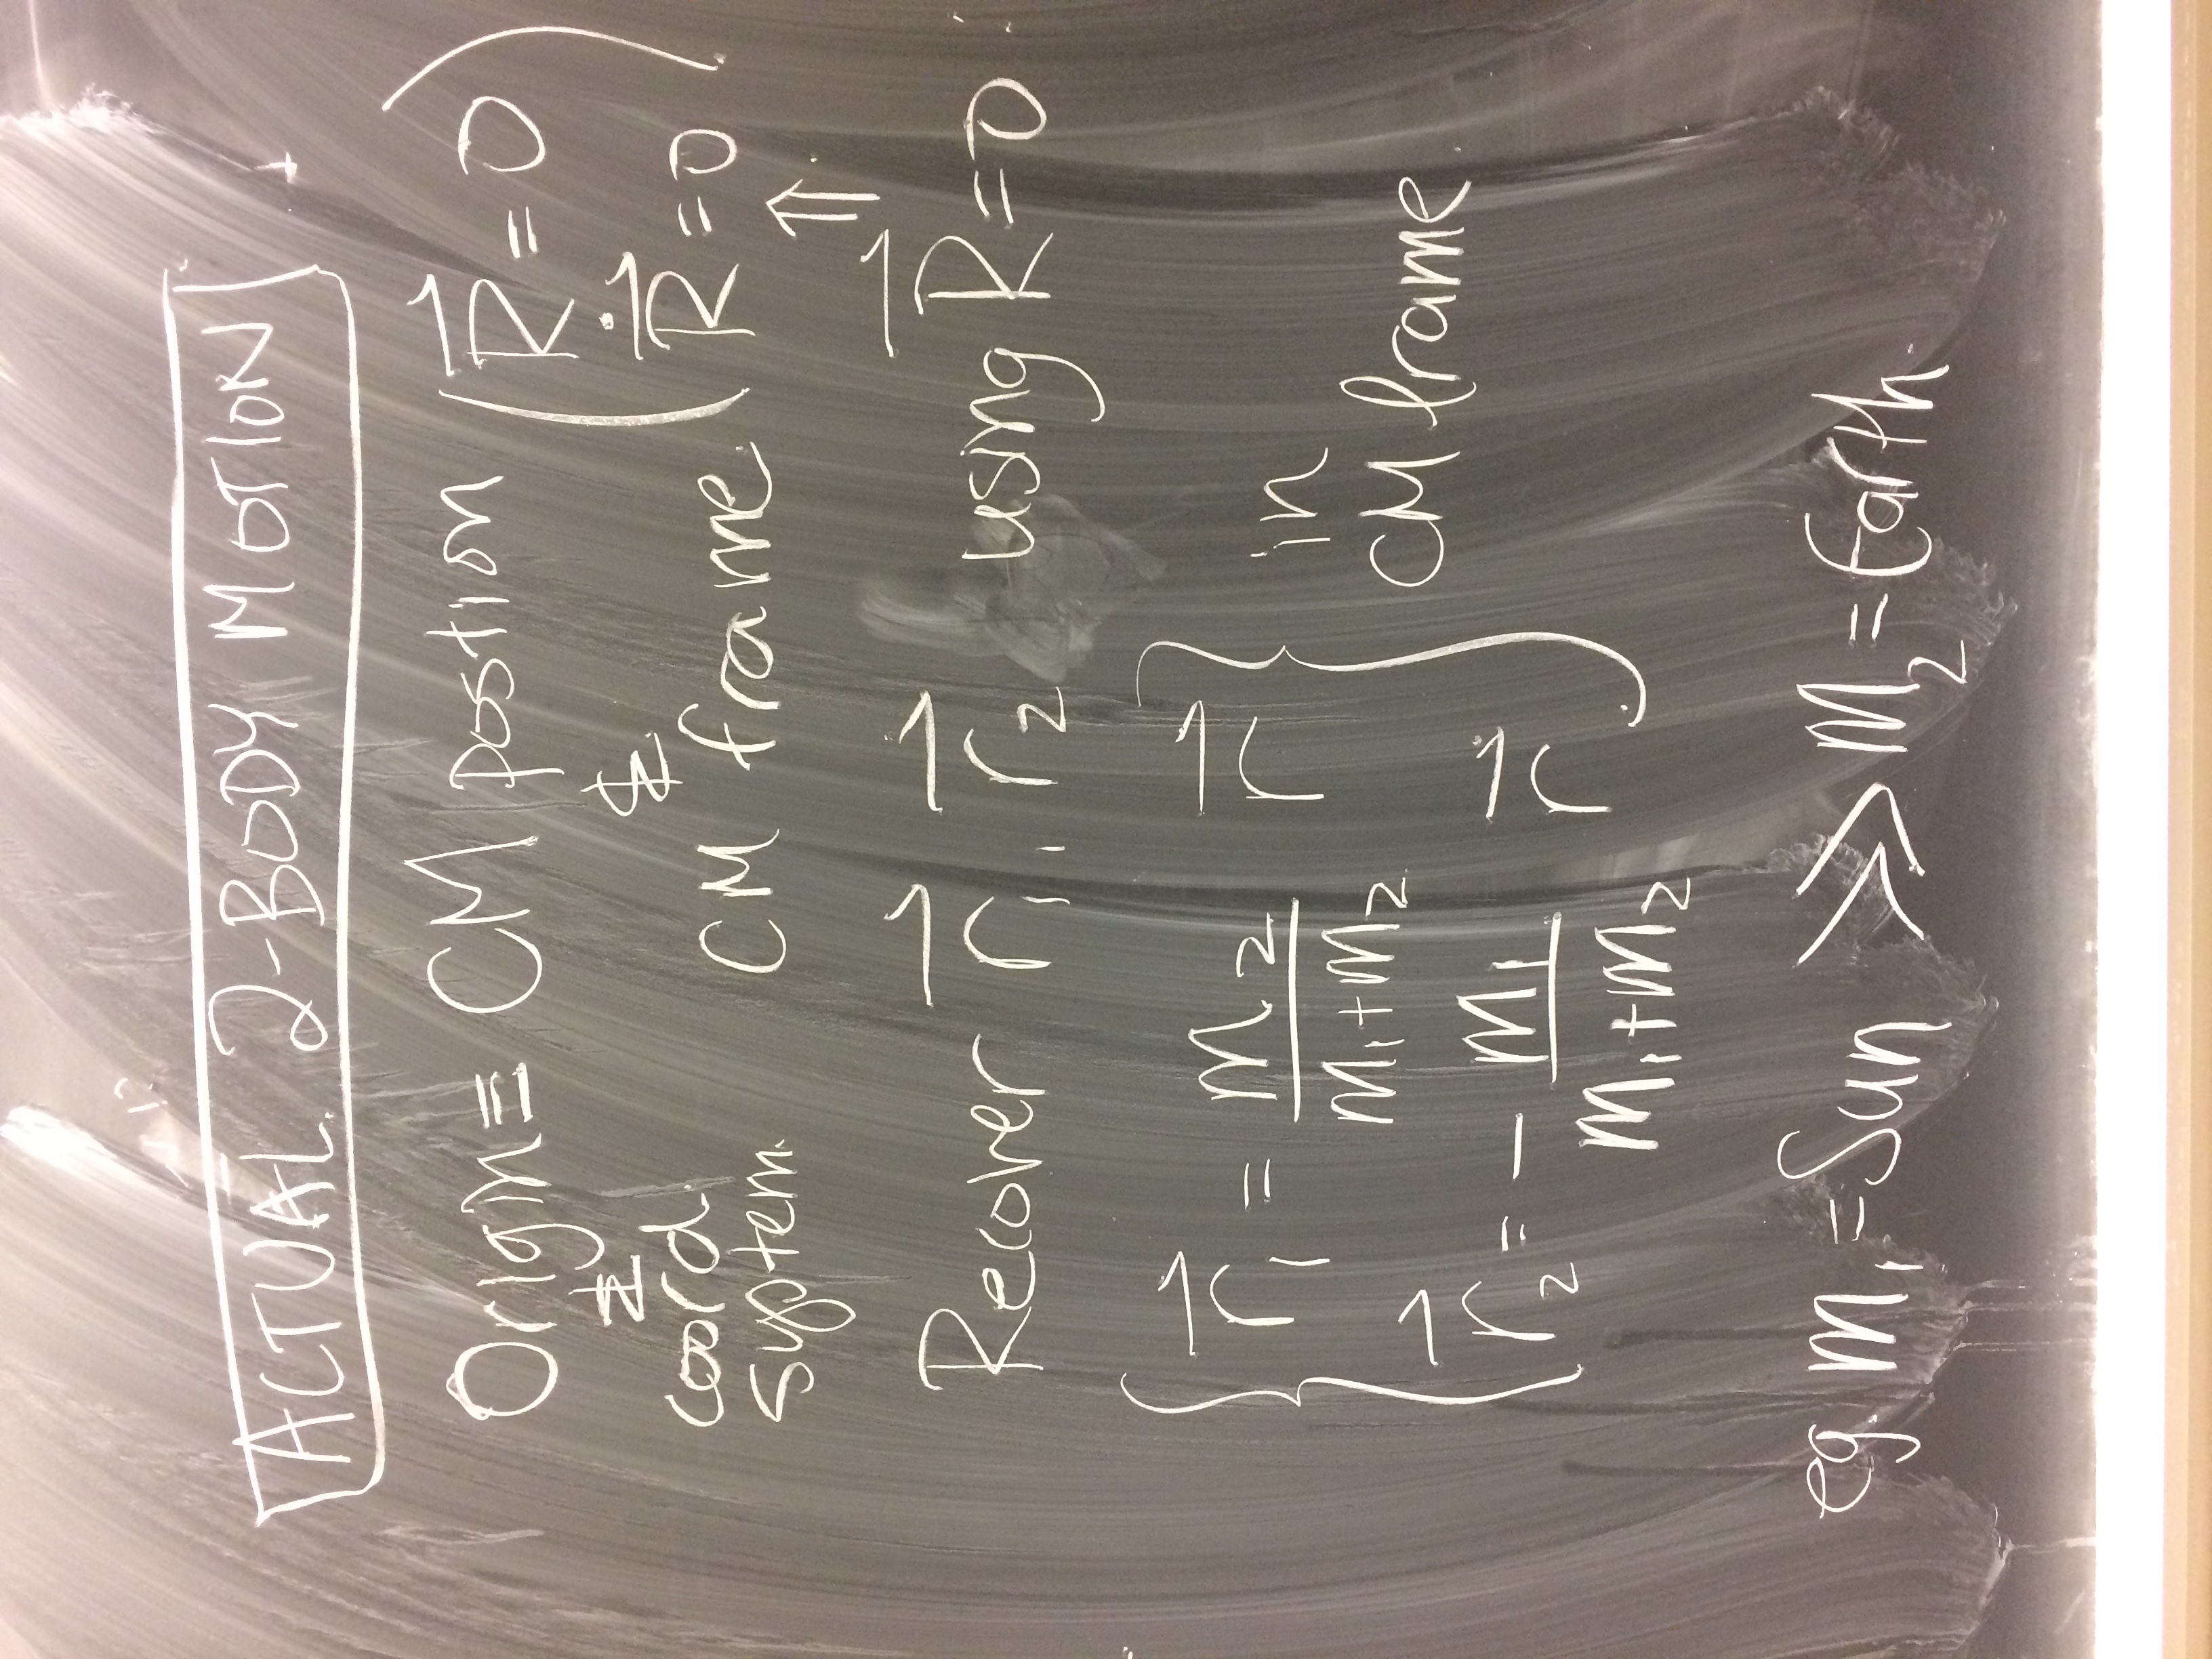 ACTUAL 2-BODY MOTION
Origin ≡ CM postion (R⃗ = 0
& &
coord CM frame Ṙ⃗ = 0)
system ⇑
Recover r⃗₁, r⃗₂ using R⃗ = 0
{ r⃗₁ = m₂/(m₁+m₂) r⃗ } in
r⃗₂ = - m₁/(m₁+m₂) r⃗ CM frame
eg m₁ = Sun >> m₂ = Earth.